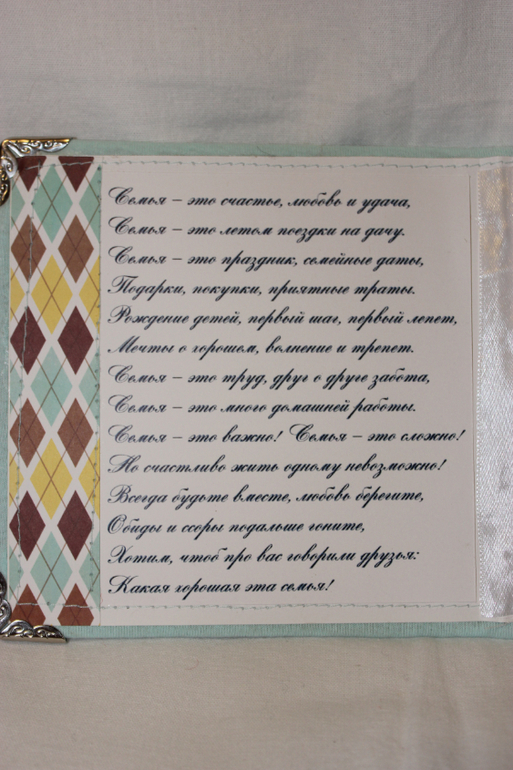 Семья – это счастье, любовь и удача,
Семья – это летом поездки на дачу.
Семья – это праздник, семейные даты,
Подарки, покупки, приятные траты.
Рождение детей, первый шаг, первый лепет,
Мечты о хорошем, волнение и трепет.
Семья – это труд, друг о друге забота,
Семья – это много домашней работы.
Семья – это важно! Семья – это сложно!
Но счастливо жить одному невозможно!
Всегда будьте вместе, любовь берегите,
Обиды и ссоры подальше гоните,
Хотим, чтоб про вас говорили друзья:
Какая хорошая эта семья!